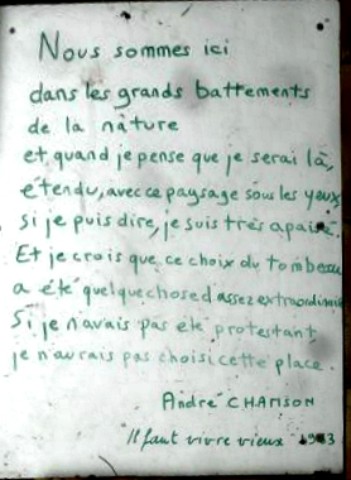 Nous sommes ici
dans les grands battements
de la nature
et quand je pense que je serai là,
étendu, avec ce paysage sous les yeux
si je puis dire, je suis très apaisé.
Et je crois que ce choix du tombeau
a été quelque chose d'assez extraordinaire
Si je n'avais pas été protestant,
je n'aurais pas choisi cette place.
André CHAMSON
Il faut vivre vieux